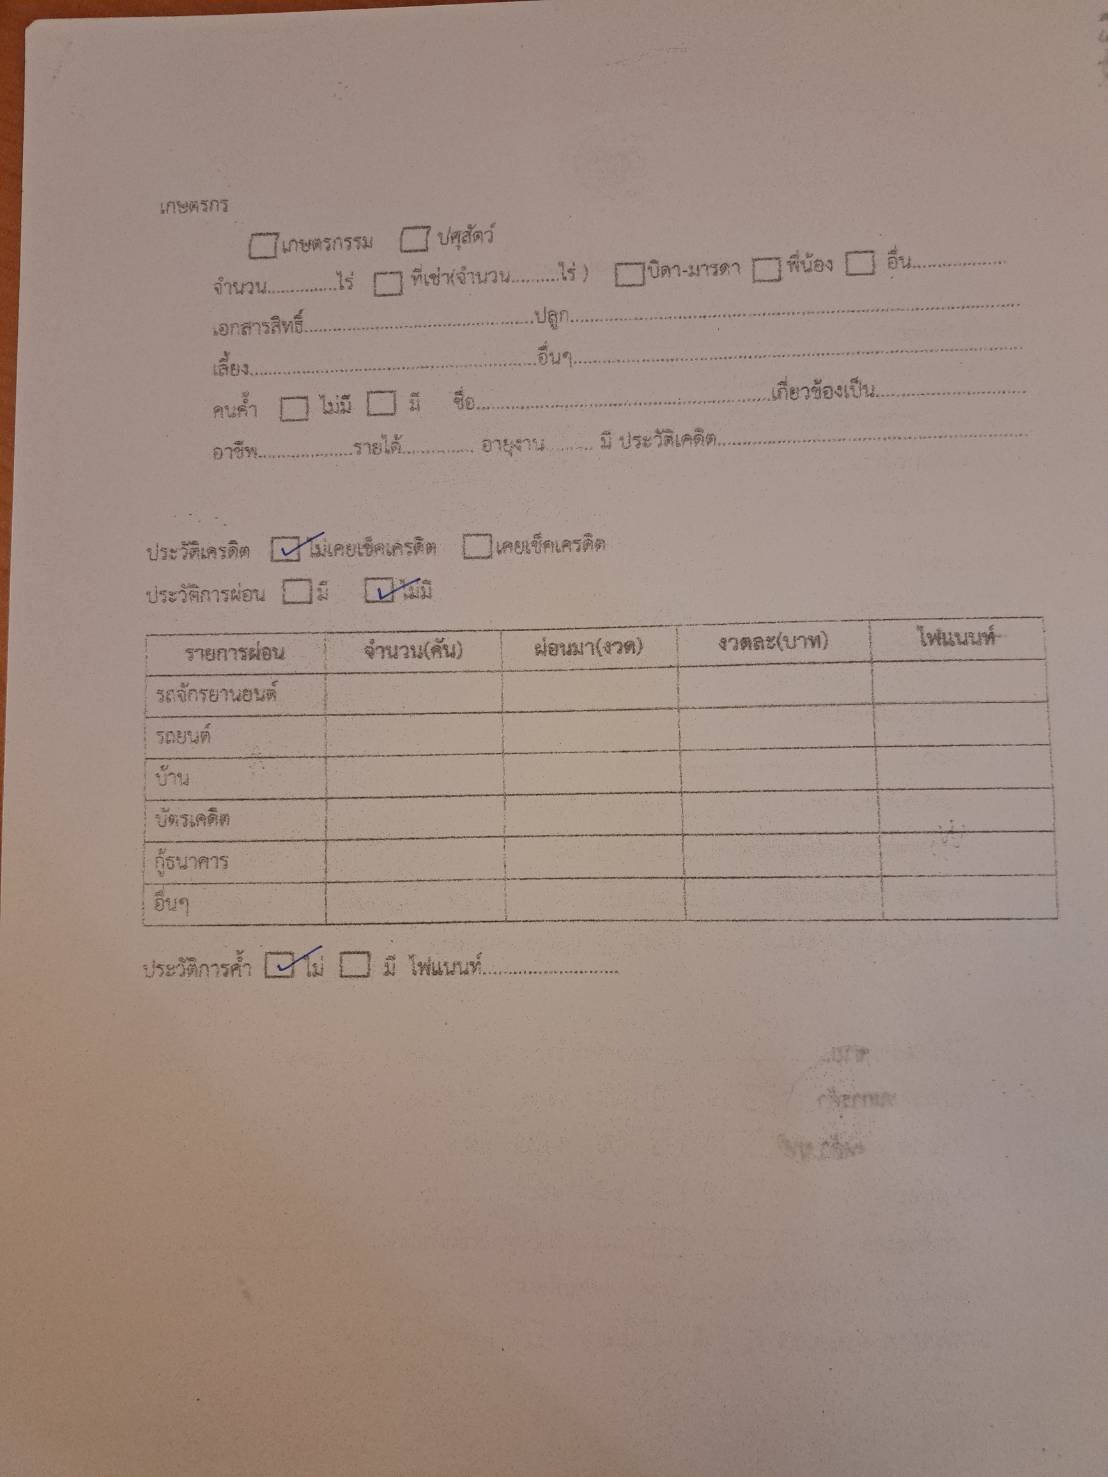 เกษตรกร
☐เกษตรกรรม ☐ปศุสัตว์
จำนวน..............ไร่ ☐ ที่เช่า(จำนวน..........ไร่ ) ☐บิดา-มารดา ☐ พี่น้อง ☐ อื่น...................
เอกสารสิทธิ์...............................................ปลูก.............................................................................................
เลี้ยง..........................................................อื่นๆ............................................................................................
คนค้ำ ☐ ไม่มี ☐ มี ชื่อ............................................................เกี่ยวข้องเป็น...............................
อาชีพ...................รายได้............... อายุงาน.......... มี ประวัติเคดิต...............................................................
ประวัติเครดิต ☑ ไม่เคยเช็คเครดิต ☐เคยเช็คเครดิต
ประวัติการผ่อน ☐มี ☑ ไม่มี
รายการผ่อน จำนวน(คัน) ผ่อนมา(งวด) งวดละ(บาท) ไฟแนนท์
รถจักรยานยนต์
รถยนต์
บ้าน
บัตรเคดิต
กู้ธนาคาร
อื่นๆ
ประวัติการค้ำ ☑ ไม่ ☐ มี ไฟแนนท์............................